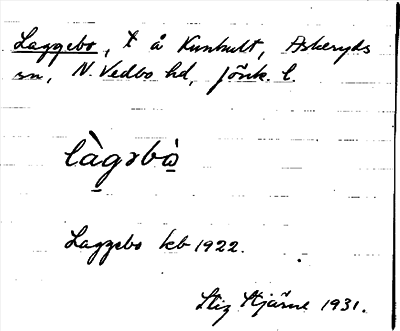 Laggebo, t å Kunhult, Askeryds
sn, N. Vedbo hd, Jönk. l.
làgəbò̱
Laggebo kb 1922.
Stig Stjärne 1931.